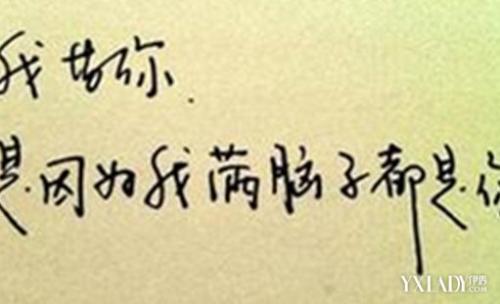 我你.
是因为我满脑子都是你
YXLADY伊秀
.COM